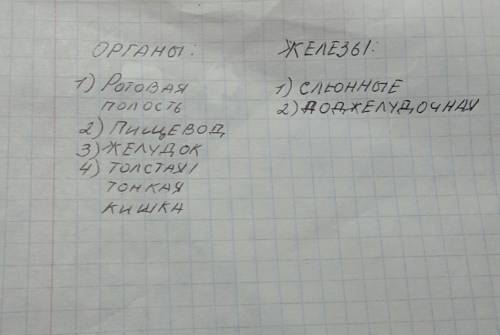 ОРГАНЫ:
1) РОТОВАЯ
ПОЛОСТЬ
2) ПИЩЕВОД
3) ЖЕЛУДОК
4) ТОЛСТАЯ/
ТОНКАЯ
КИШКА
ЖЕЛЕЗЫ:
1) СЛЮННЫЕ
2) ПОДЖЕЛУДОЧНАЯ